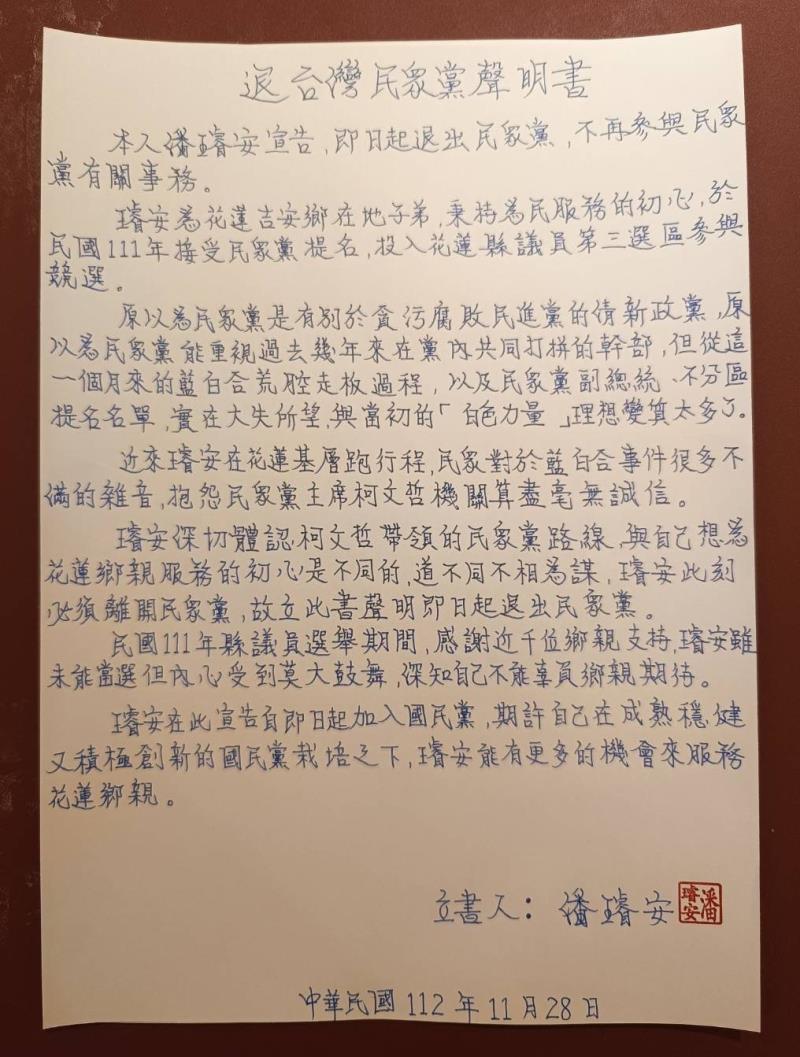 退台灣民眾黨聲明書
本人潘璿安宣告,即日起退出民眾黨,不再參與民眾
黨有關事務。
璿安為花蓮吉安鄉在地子弟,秉持為民服務的初心,於
民國111年接受民眾黨提名,投入花蓮縣議員第三選區參與
競選。
原以為民眾黨是有別於貪污腐敗民進黨的清新政黨,原
以為民眾黨能重視過去幾年來在黨內共同打拼的幹部,但從這
一個月來的藍白合荒腔走板過程,以及民眾黨副總統、不分區
提名名單,實在大失所望,與當初的「白色力量」理想變質太多了。
近來璿安在花蓮基層跑行程,民眾對於藍白合事件很多不
滿的雜音,抱怨民眾黨主席柯文哲機關算盡毫無誠信。
璿安深切體認柯文哲帶領的民眾黨路線,與自己想為
花蓮鄉親服務的初心是不同的,道不同不相為謀,璿安此刻
必須離開民眾黨,故立此書聲明即日起退出民眾黨。
民國111年縣議員選舉期間,感謝近千位鄉親支持,璿安雖
未能當選但內心受到莫大鼓舞,深知自己不能辜負鄉親期待。
璿安在此宣告自即日起加入國民黨,期許自己在成熟穩健
又積極創新的國民黨栽培之下,璿安能有更多的機會來服務
花蓮鄉親。
立書人:潘璿安 潘璿安
中華民國 112 年 11 月 28 日